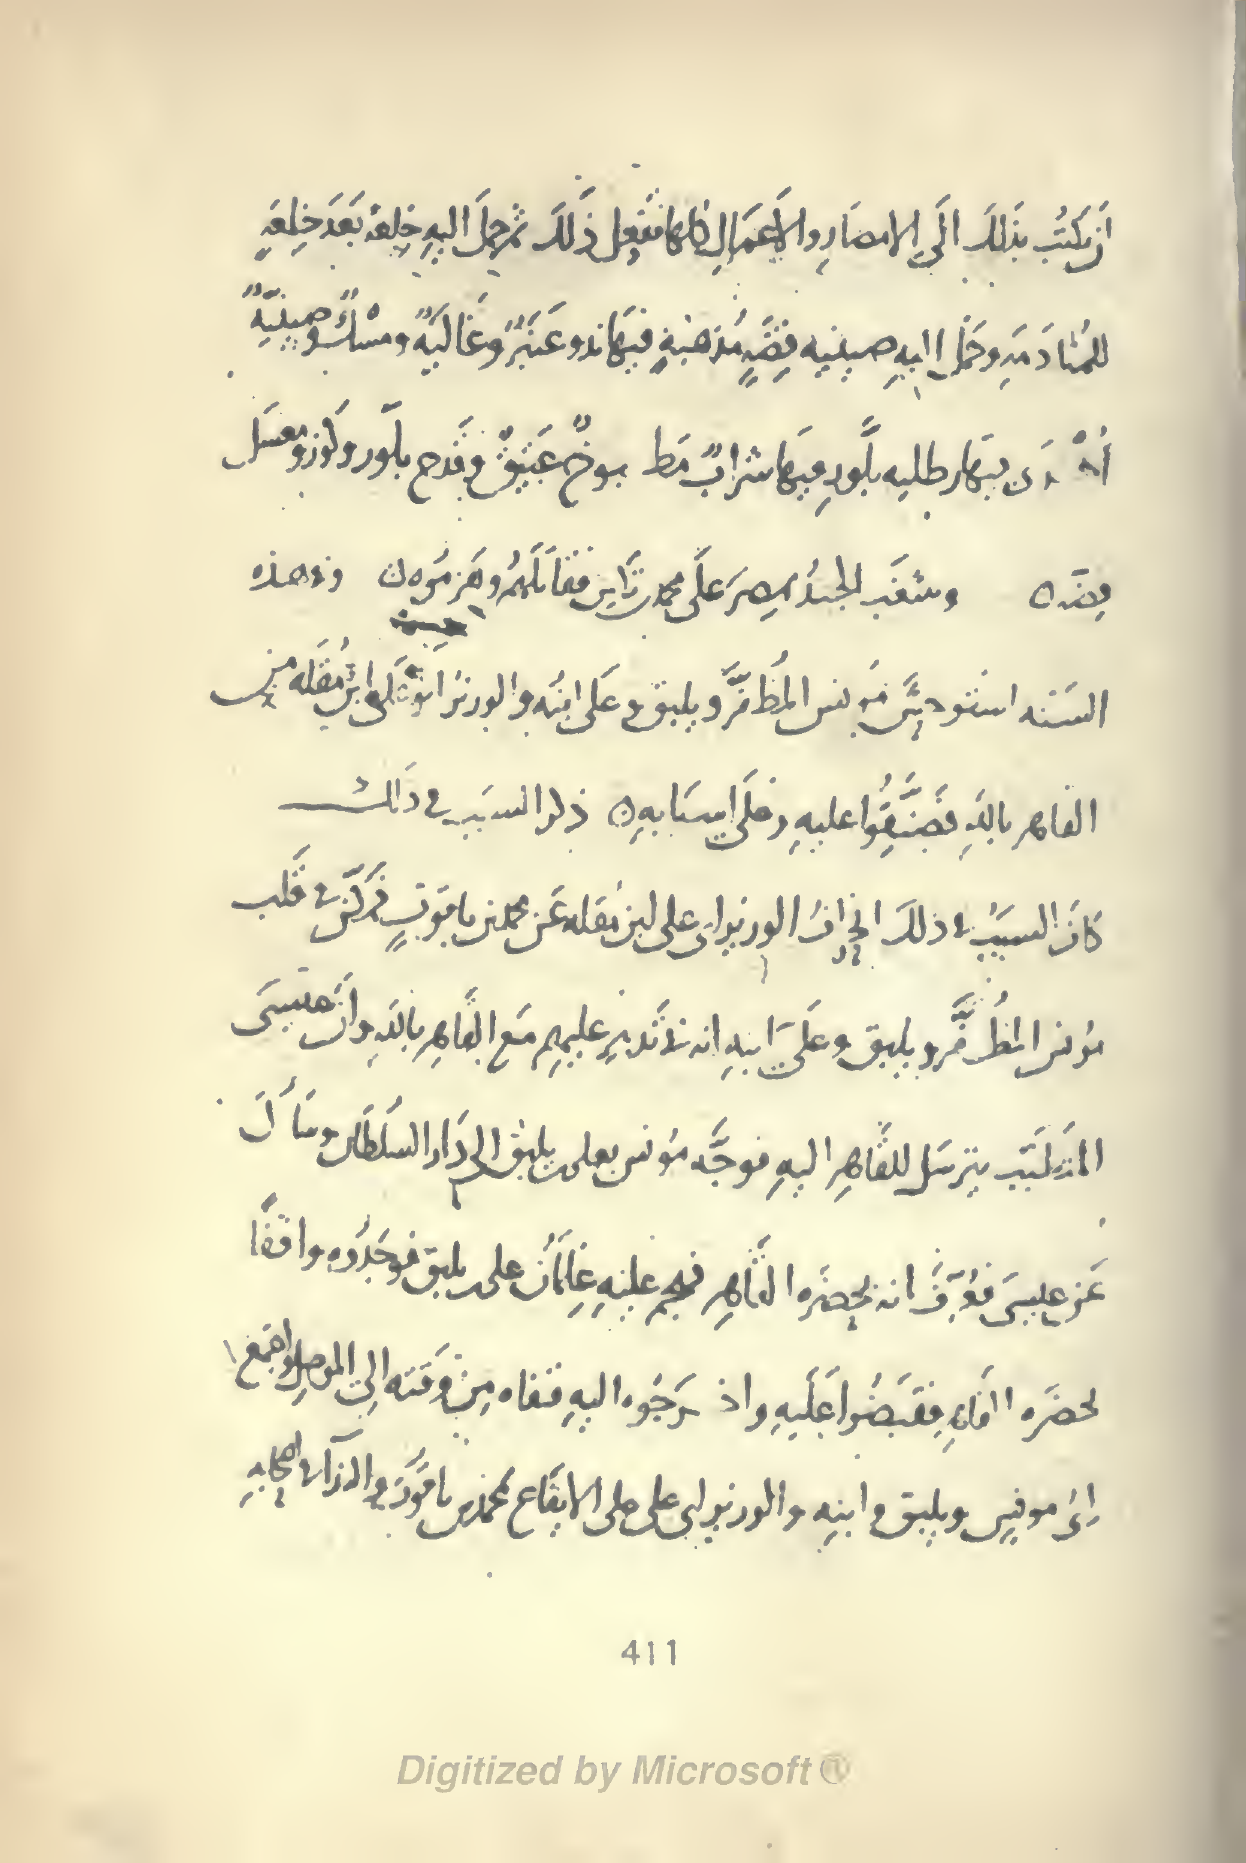 أن يكتب بذلك الى الامصار والاعمال كلها ففعل ذلك ثم حمل اليه خلعة بعد خلعة
للمنادمة وحمل اليه صينيه فضة مذهبة فيها ند وعنبر وغالية ومسك وصينية
أخرى فيها رطليه بلور فيها شراب مطبوخ عتيق وقدح بلور وكوز ومغسل
فضه ه وشغب الجند بمصر على محمد بن تكين فقاتلهم وهزمهم ه وفى هذه
السنه استوحش مونس المظفر وبليق وعلى ابنه والوزير ابو على ابن مقله من
القاهر بالله فضيقوا عليه وعلى اسبابه ه ذكر السبب فى ذلك
كان السبب فى ذلك انحراف الوزير ابى على ابن مقله عن محمد بن ياقوت فركز فى قلب
مونس المظفر وبليق وعلى ابنه انه فى تدبير عليهم مع القاهر بالله وان عيسى
المتطبب يترسل للقاهر اليه فوجه مونس بعلى بن بليق الى دار السلطان وسأل
عن عيسى فعرف انه بحضره القاهر فهجم عليه غلمان على بن بليق فوجدوه واقفا
بحضره القاهر فقبضوا عليه واخرجوه اليه فنفاه من وقته الى الموصل واجتمع
راى مونس وبليق وابنه والوزير ابى على على الايقاع بمحمد بن ياقوت وانه فى اصحابه
411
Digitized by Microsoft ®